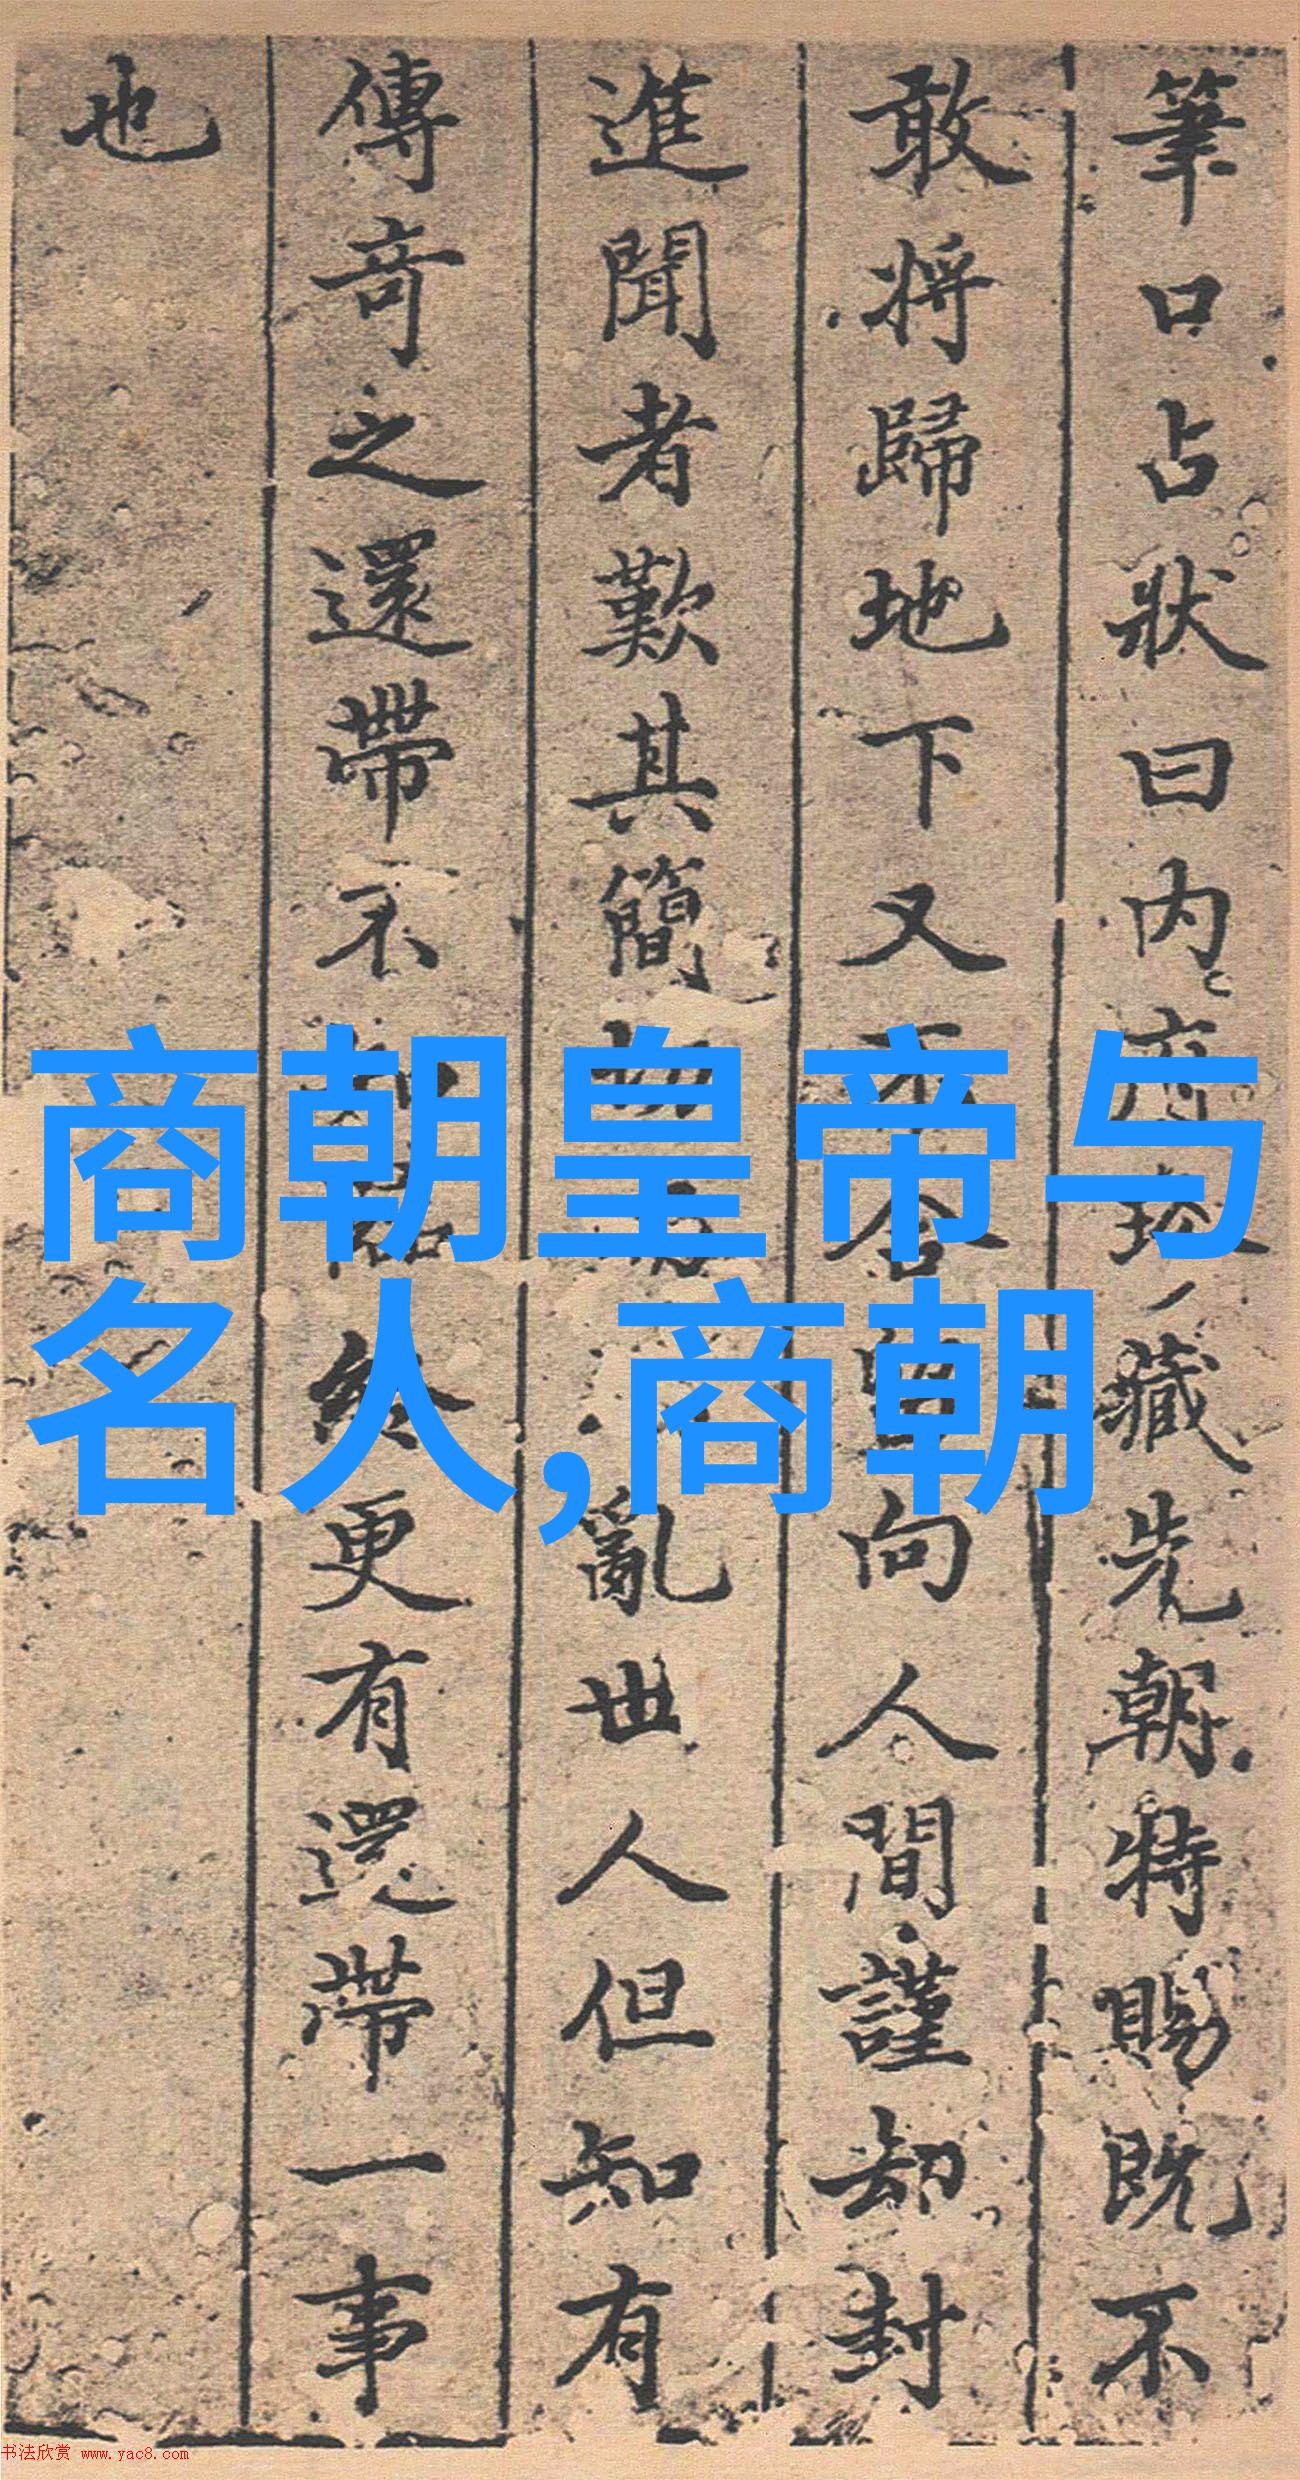 筆口占狀曰内藏先朝特賜既不
敢將歸地下又不合向人間謹却封
進聞者歎其簡亂世人但知有
傳奇之還帶不終更有還帶一事
也
商朝皇帝与
名人,商朝
书法欣赏 www.yac8.com